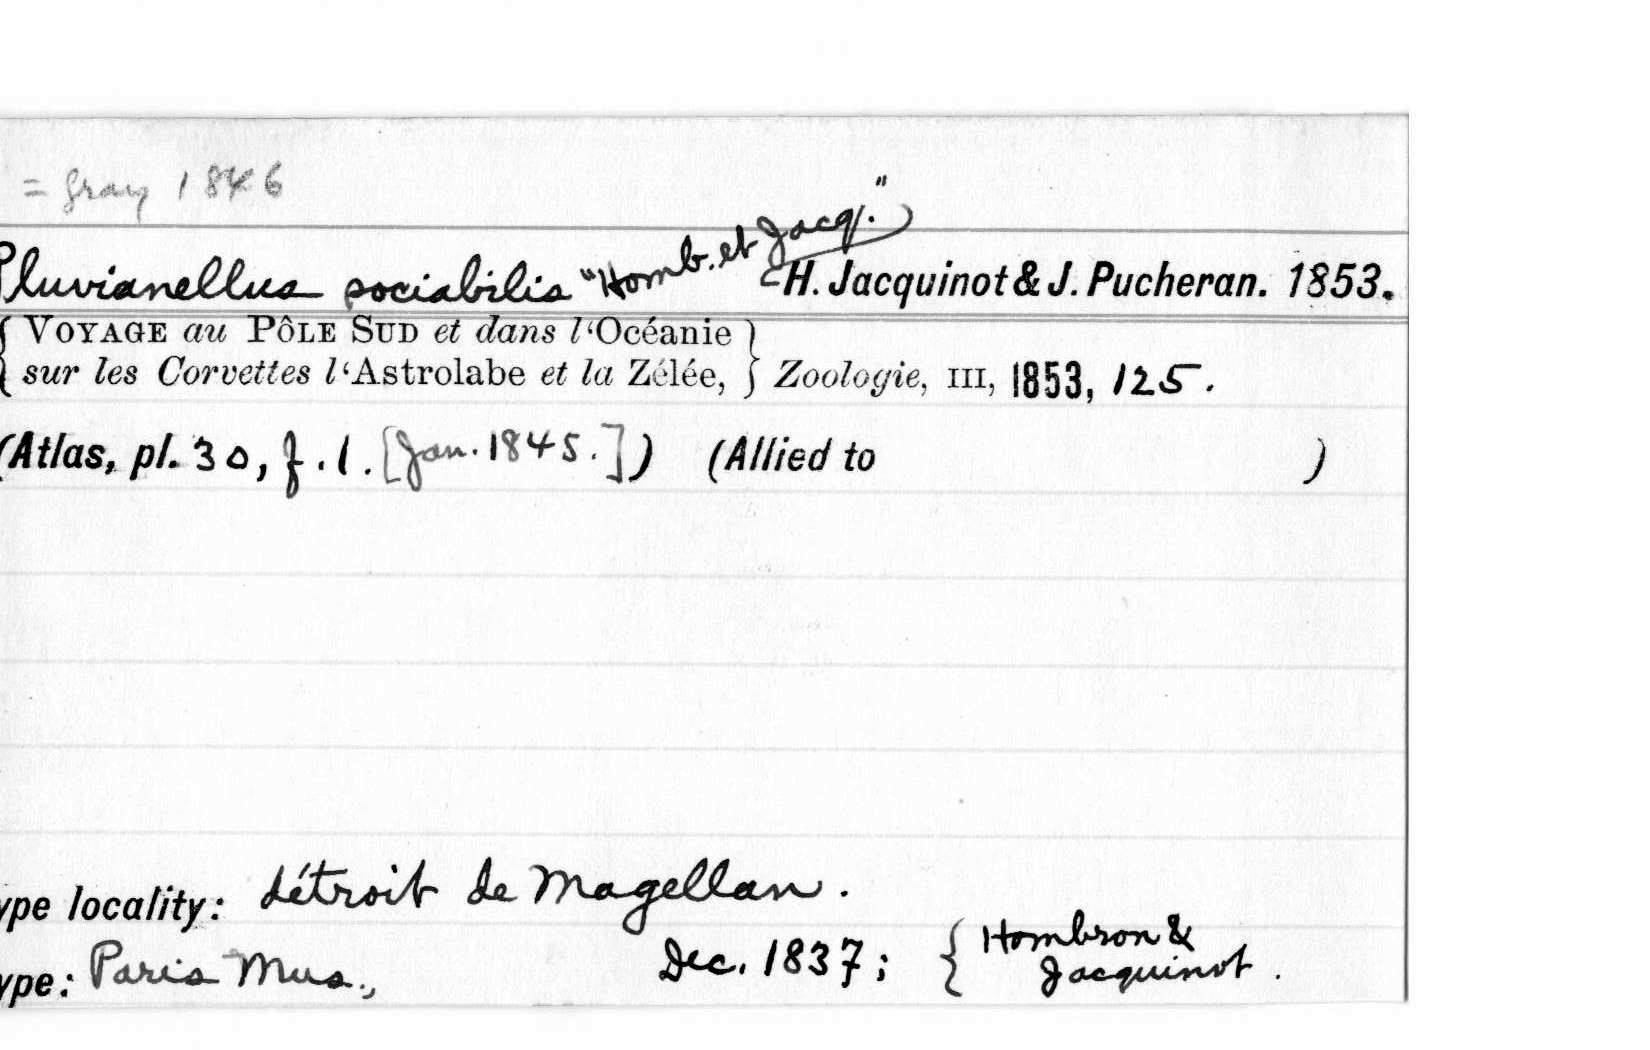 = Gray 1846
Pluvianellus sociabilis "Homb. et Jacq." H. Jacquinot & J. Pucheran. 1853.
{ VOYAGE au PÔLE SUD et dans l'Océanie }
{ sur les Corvettes l'Astrolabe et la Zélée, } Zoologie, III, 1853, 125.
(Atlas, pl. 30, f. 1. [Jan. 1845.]) (Allied to )
ype locality: détroit de Magellan.
ype: Paris Mus., Dec. 1837; { Hombron &
Jacquinot.